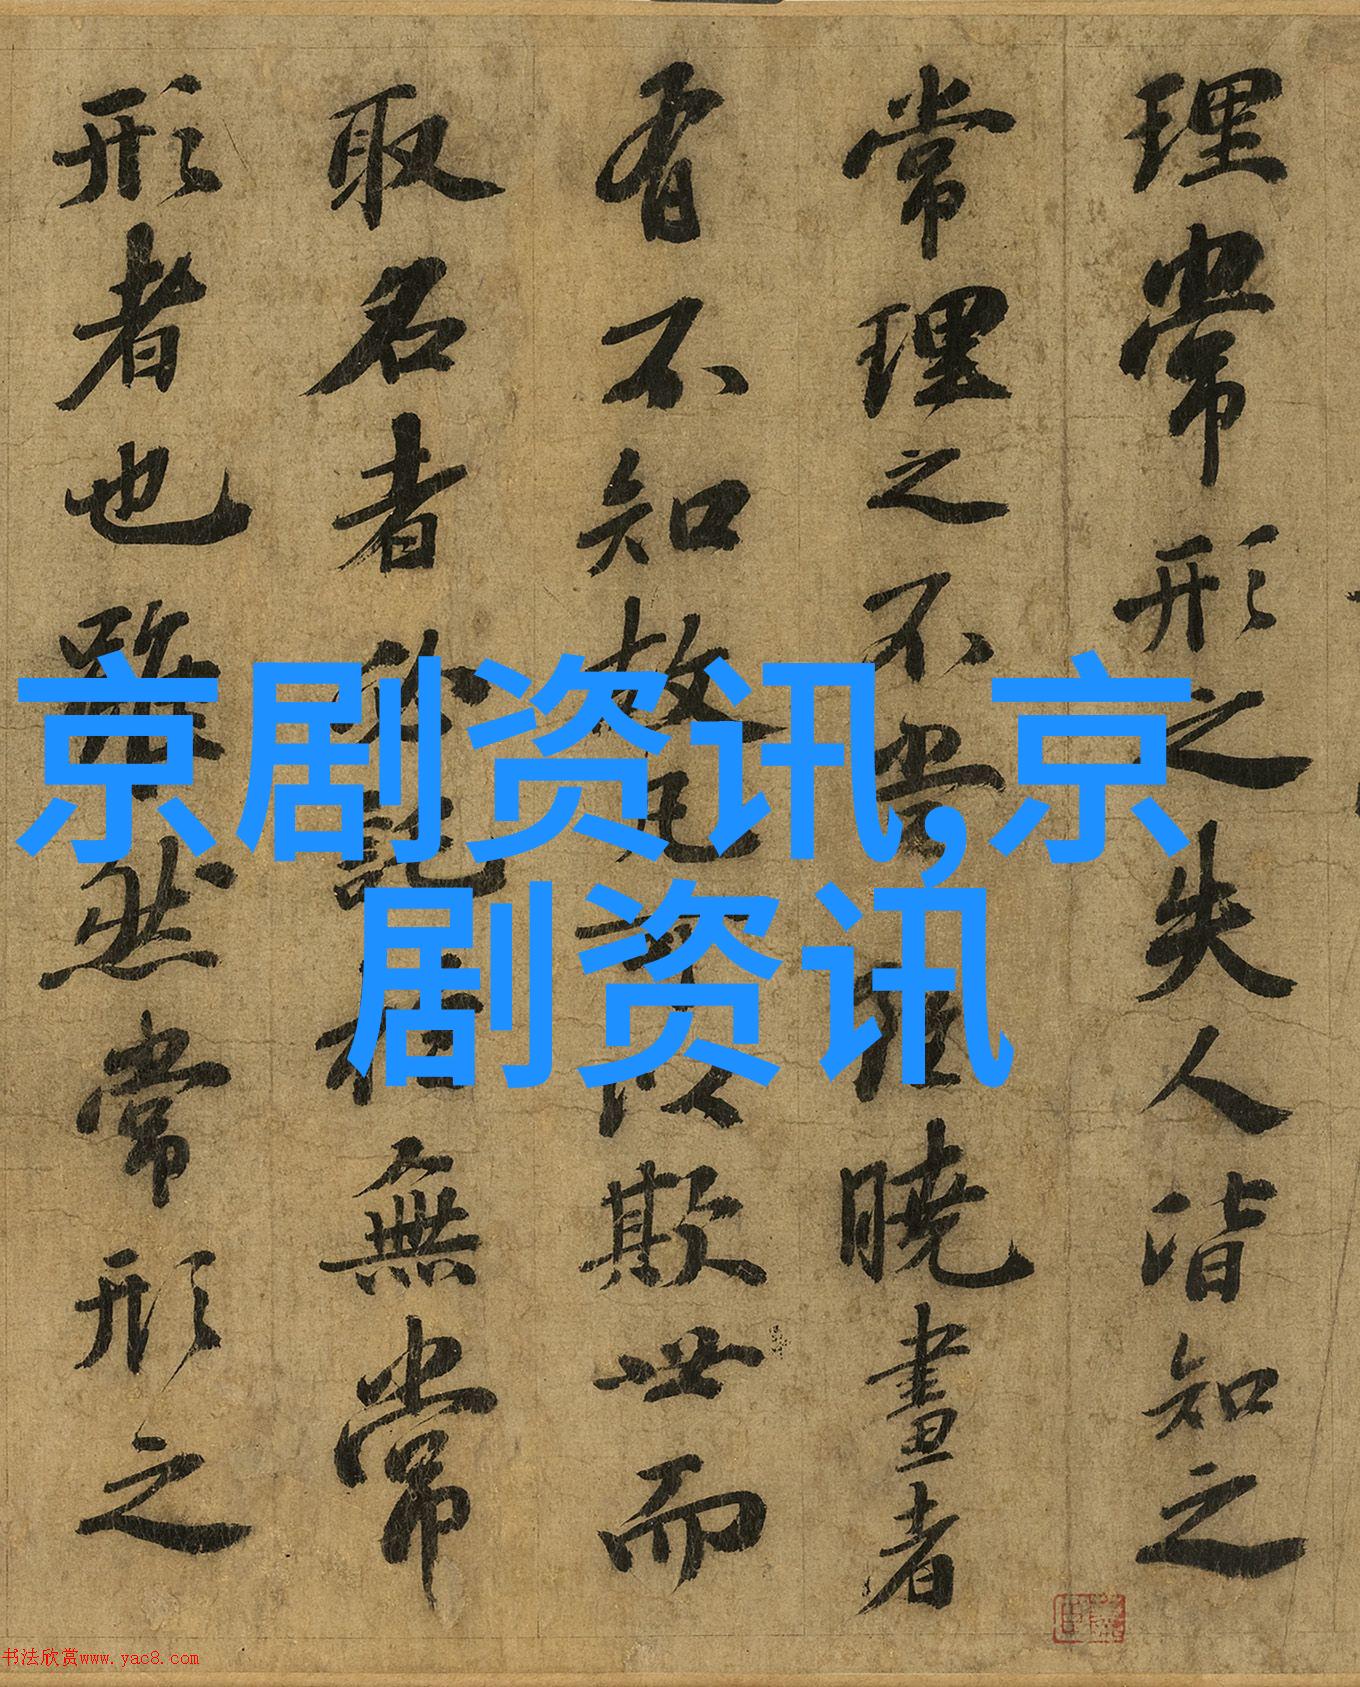 理常形之失人皆知之
常理之不當雖曉畫者
有不知故凡以欺世而
取名者必託於無常
形者也雖然常形之
京剧资讯,京
剧资讯
书法欣赏www.yac8.com